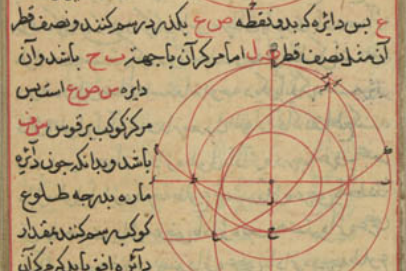 ع پس دایره که بدو نقطه ص ع بکذرد رسم کنند و نصف قطر
آن مثل نصف قطر ل اما مرکز آن با جهة ب ح باشد و آن
دایره س ص ع است پس
مرکز کوکب بر قوس س ف
باشد و بدانکه چون دایره
ماره بدرجه طلوع
کوکب رسم کنند بمقدار
دائره افق باید که مرکز آن